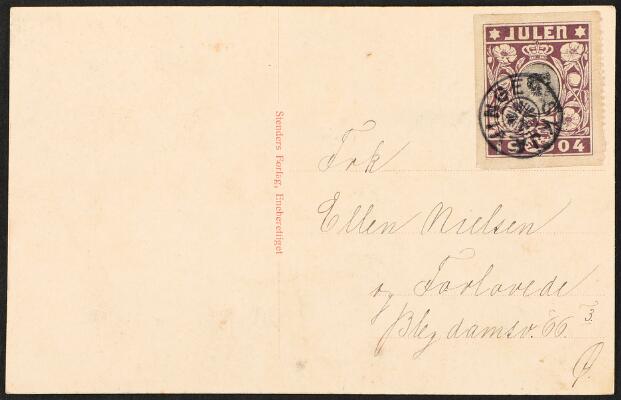 JULEN
1904
Stenders Forlag, Eneberettiget
Frk
Ellen Nielsen
og Forlovede
Blegdamsv. 66. 3.
Ø.